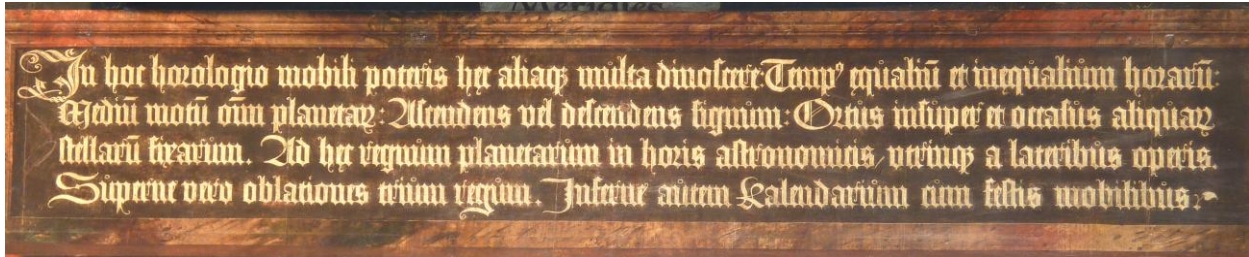 Meridies
In hoc horologio mobili poteris hec aliaqꝫ multa dinoscere: Tempꝰ equaliū et inequalium horarū:
Mediū motū oīm planetaꝝ: Ascendens vel descendens signum: Ortus insuper et occasus aliquaꝝ
stellarū fixarum. Ad hec regnum planetarum in horis astronomicis, vtrinqꝫ a lateribus operis.
Superne vero oblationes trium regum. Inferne autem Kalendarium cum festis mobilibus: